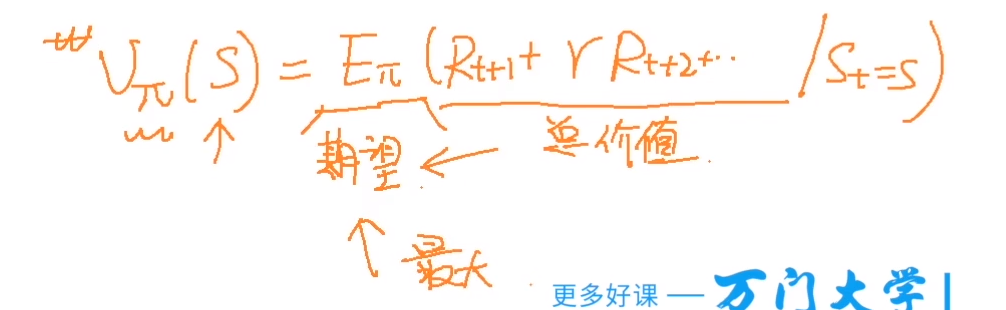 V_π(S) = E_π(R_{t+1} + γ R_{t+2} + ·· / S_t = s)
期望 ← 总价值
↑ 最大
更多好课 — 万门大学